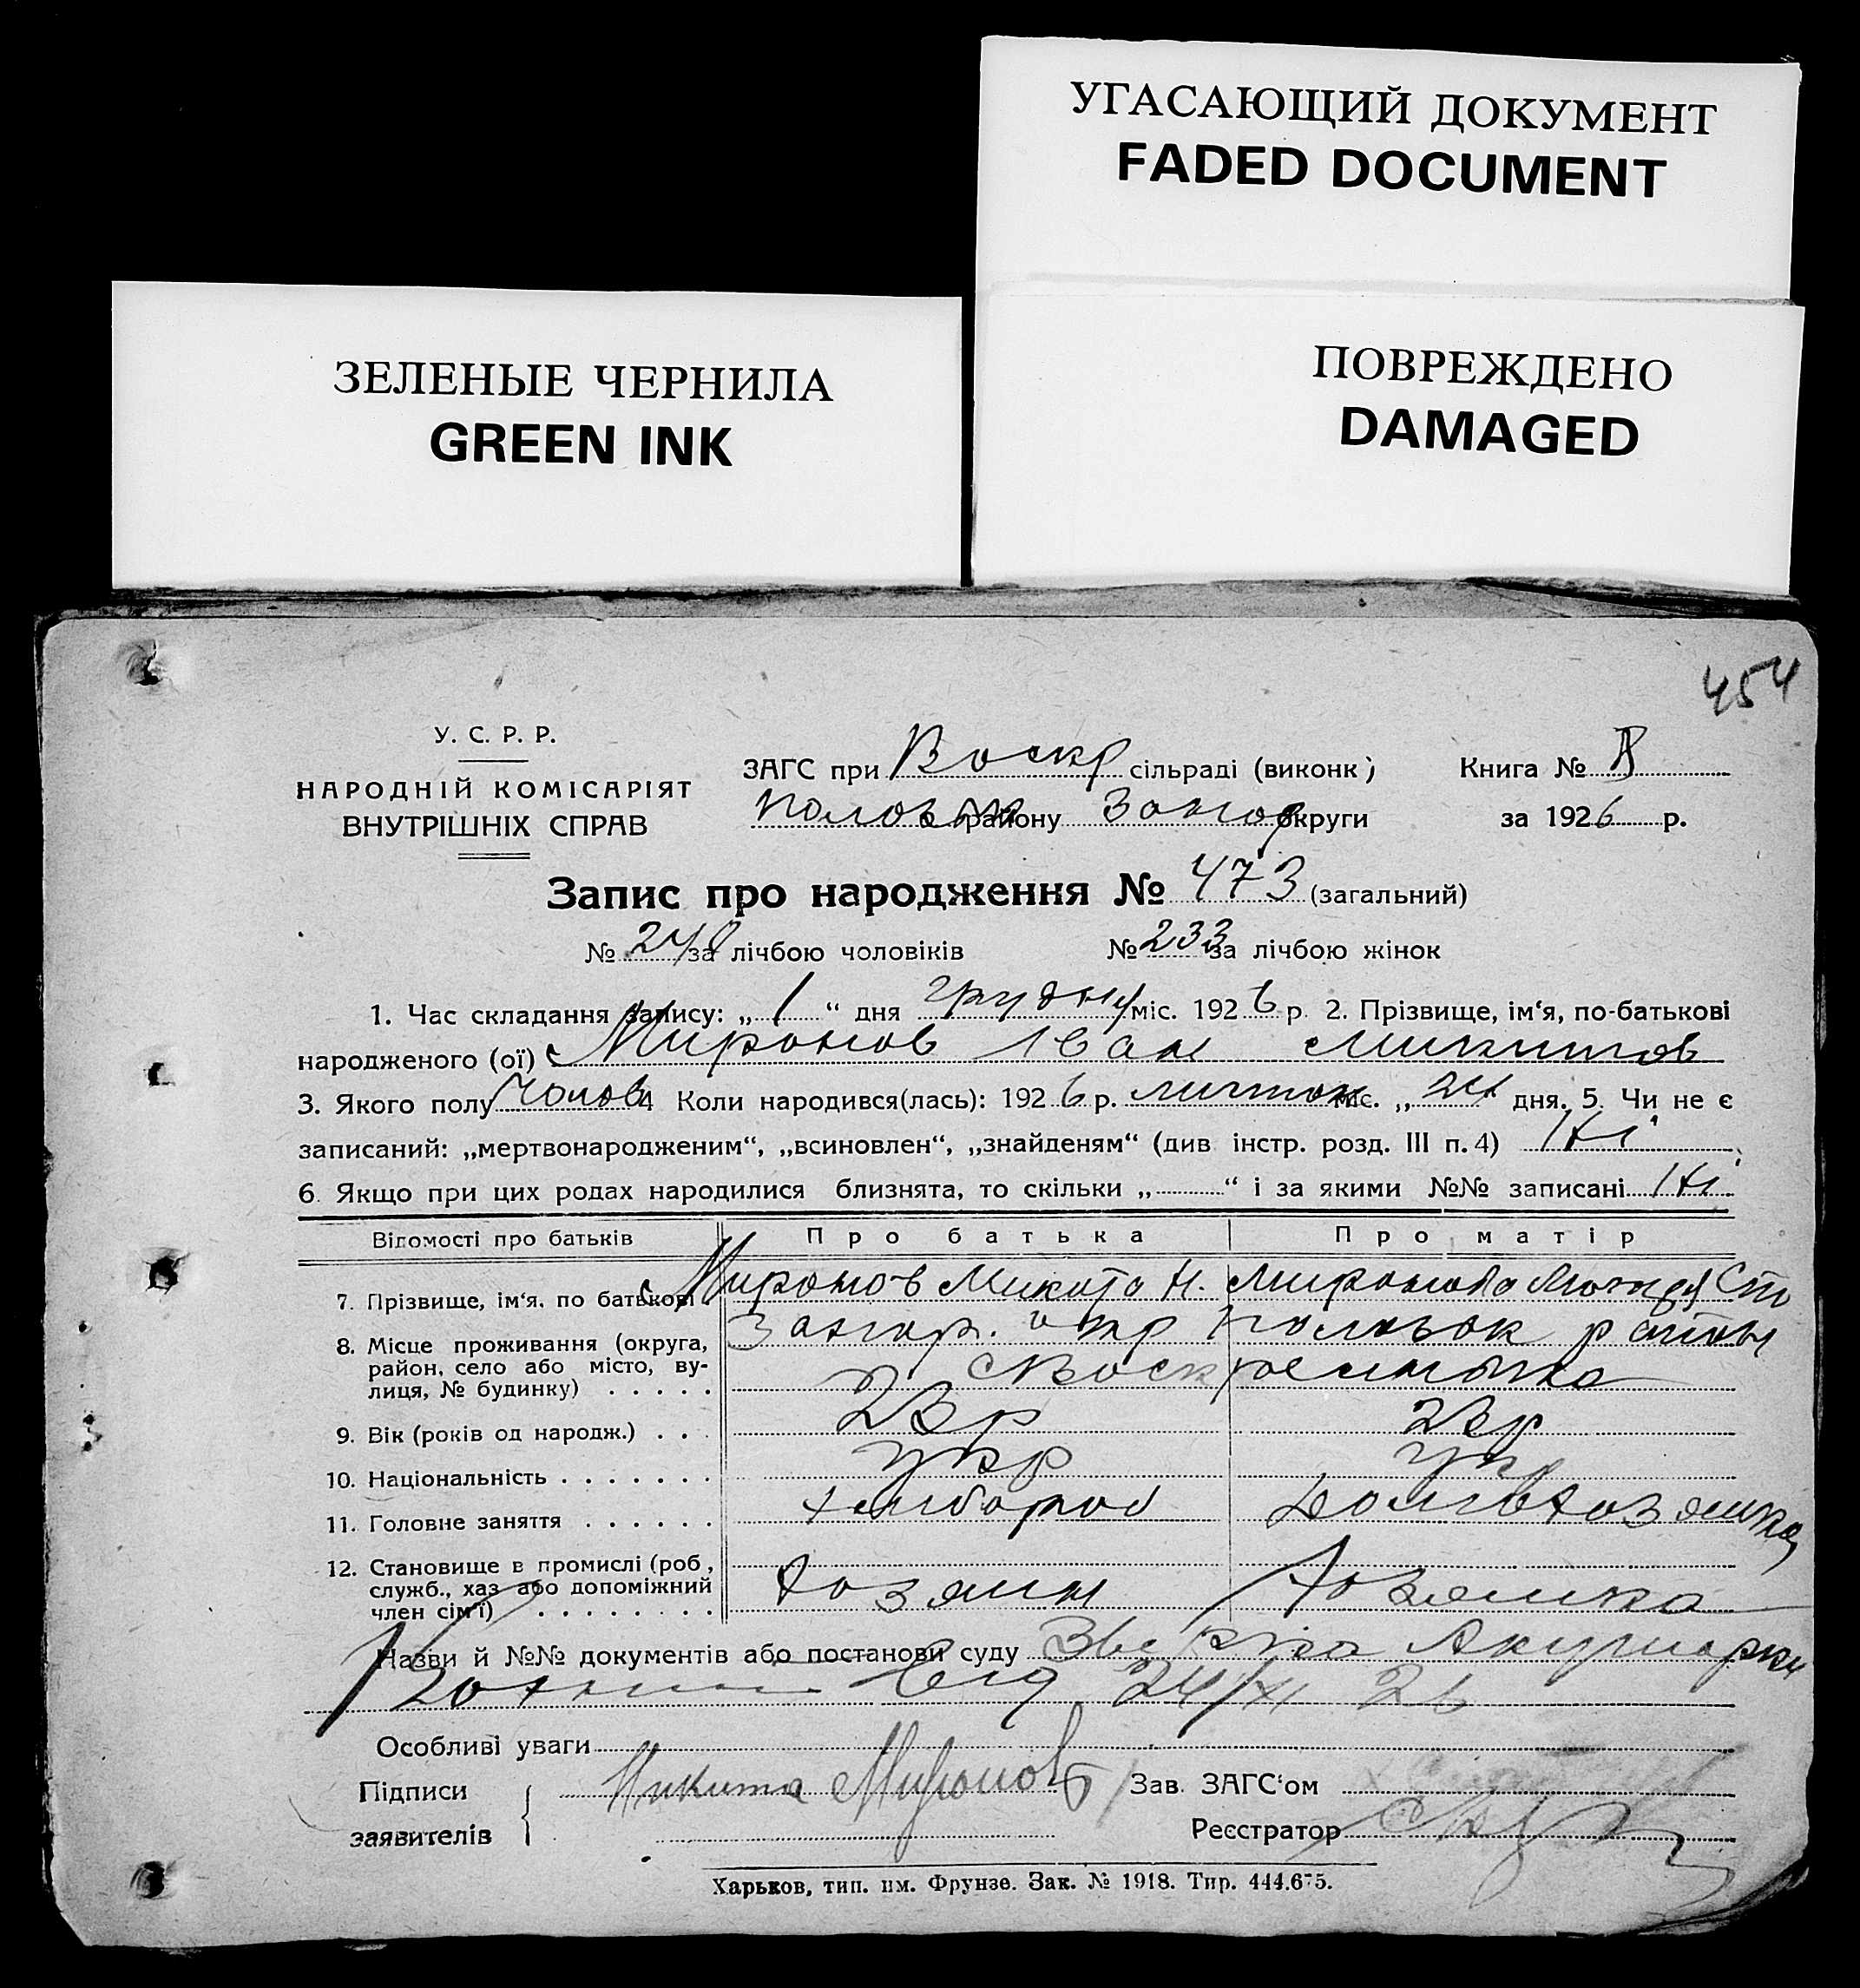 УГАСАЮЩИЙ ДОКУМЕНТ
FADED DOCUMENT
ЗЕЛЕНЫЕ ЧЕРНИЛА
GREEN INK
ПОВРЕЖДЕНО
DAMAGED
454
У. С. Р. Р.
НАРОДНІЙ КОМІСАРІЯТ
ВНУТРІШНІХ СПРАВ
ЗАГС при Воскр сільраді (виконк.)
Книга №
району Запор округи
за 1926 р.
Запис про народження № 473 (загальний)
№ 240 за лічбою чоловіків № 233 за лічбою жінок
1. Час складання запису: „ 1 “ дня грудня міс. 1926 р. 2. Прізвище, ім‘я, по-батькові
народженого (ої) Миронов Іван Микитов
3. Якого полу Чолов 4 Коли народився(лась): 1926 р. листоп міс. „ 24 дня. 5. Чи не є
записаний: „мертвонародженим“, „всиновлен“, „знайденям“ (див інстр. розд. III п. 4) Ні
6. Якщо при цих родах народилися близнята, то скільки „ “ і за якими №№ записані Ні
Відомості про батьків Про батька Про матір
7. Прізвище, ім‘я, по батькові Миронов Микита Н. Миронова
8. Місце проживання (округа, Запор. окр Половок району
район, село або місто, ву-
лиця, № будинку) с Воскресенька
9. Вік (років од народж.) 23 р 23 р
10. Національність укр укр
11. Головне заняття хлибороб Домохозяйка
12. Становище в промислі (роб.,
служб., хаз або допоміжний Хозяин Хозяйка
член сім‘ї)
Назви й №№ документів або постанови суду Акушорки
від 24/XI 26
Особливі уваги
Підписи
заявителів
Микита Миронов
Зав. ЗАГС‘ом
Реєстратор
Харьков, тип. им. Фрунзе. Зак. № 1918. Тир. 444.675.